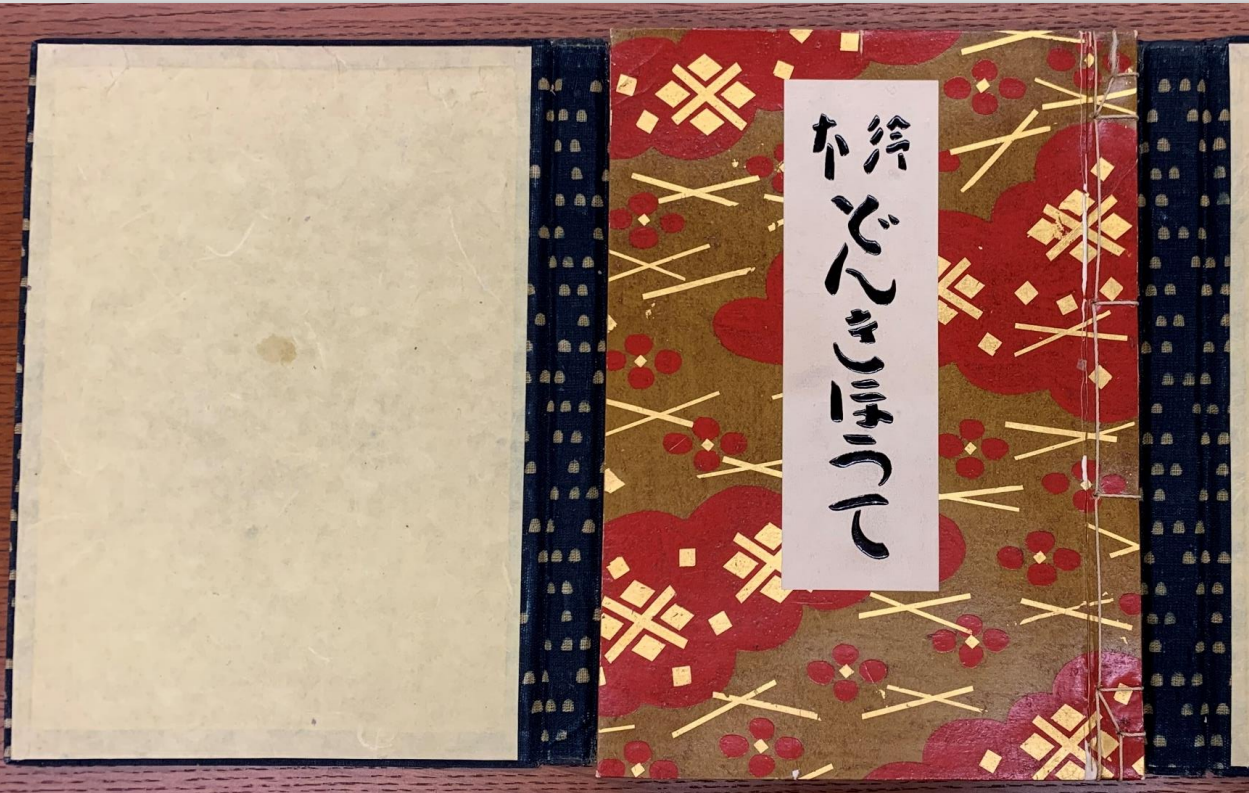 絵本
どんきほうて